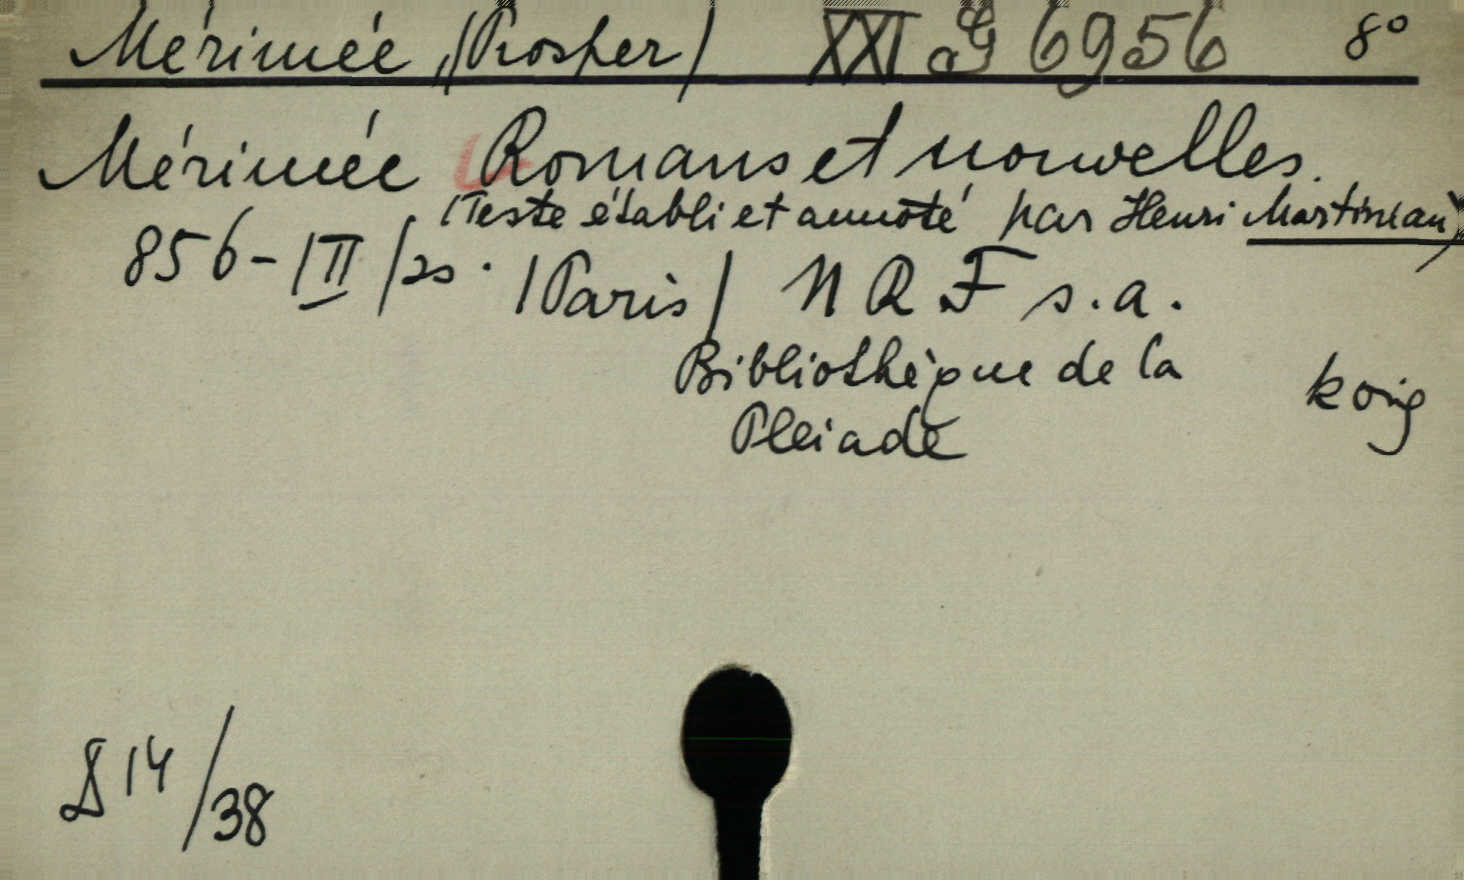 Mérimée, (Prosper) XXI G 6956 8°
Mérimée Romans et nouvelles.
(Texte établi et annoté par Henri Martineau)
856-III/25. (Paris) NRF s.a.
Bibliothèque de la
Pleiade
korig
D 14/38